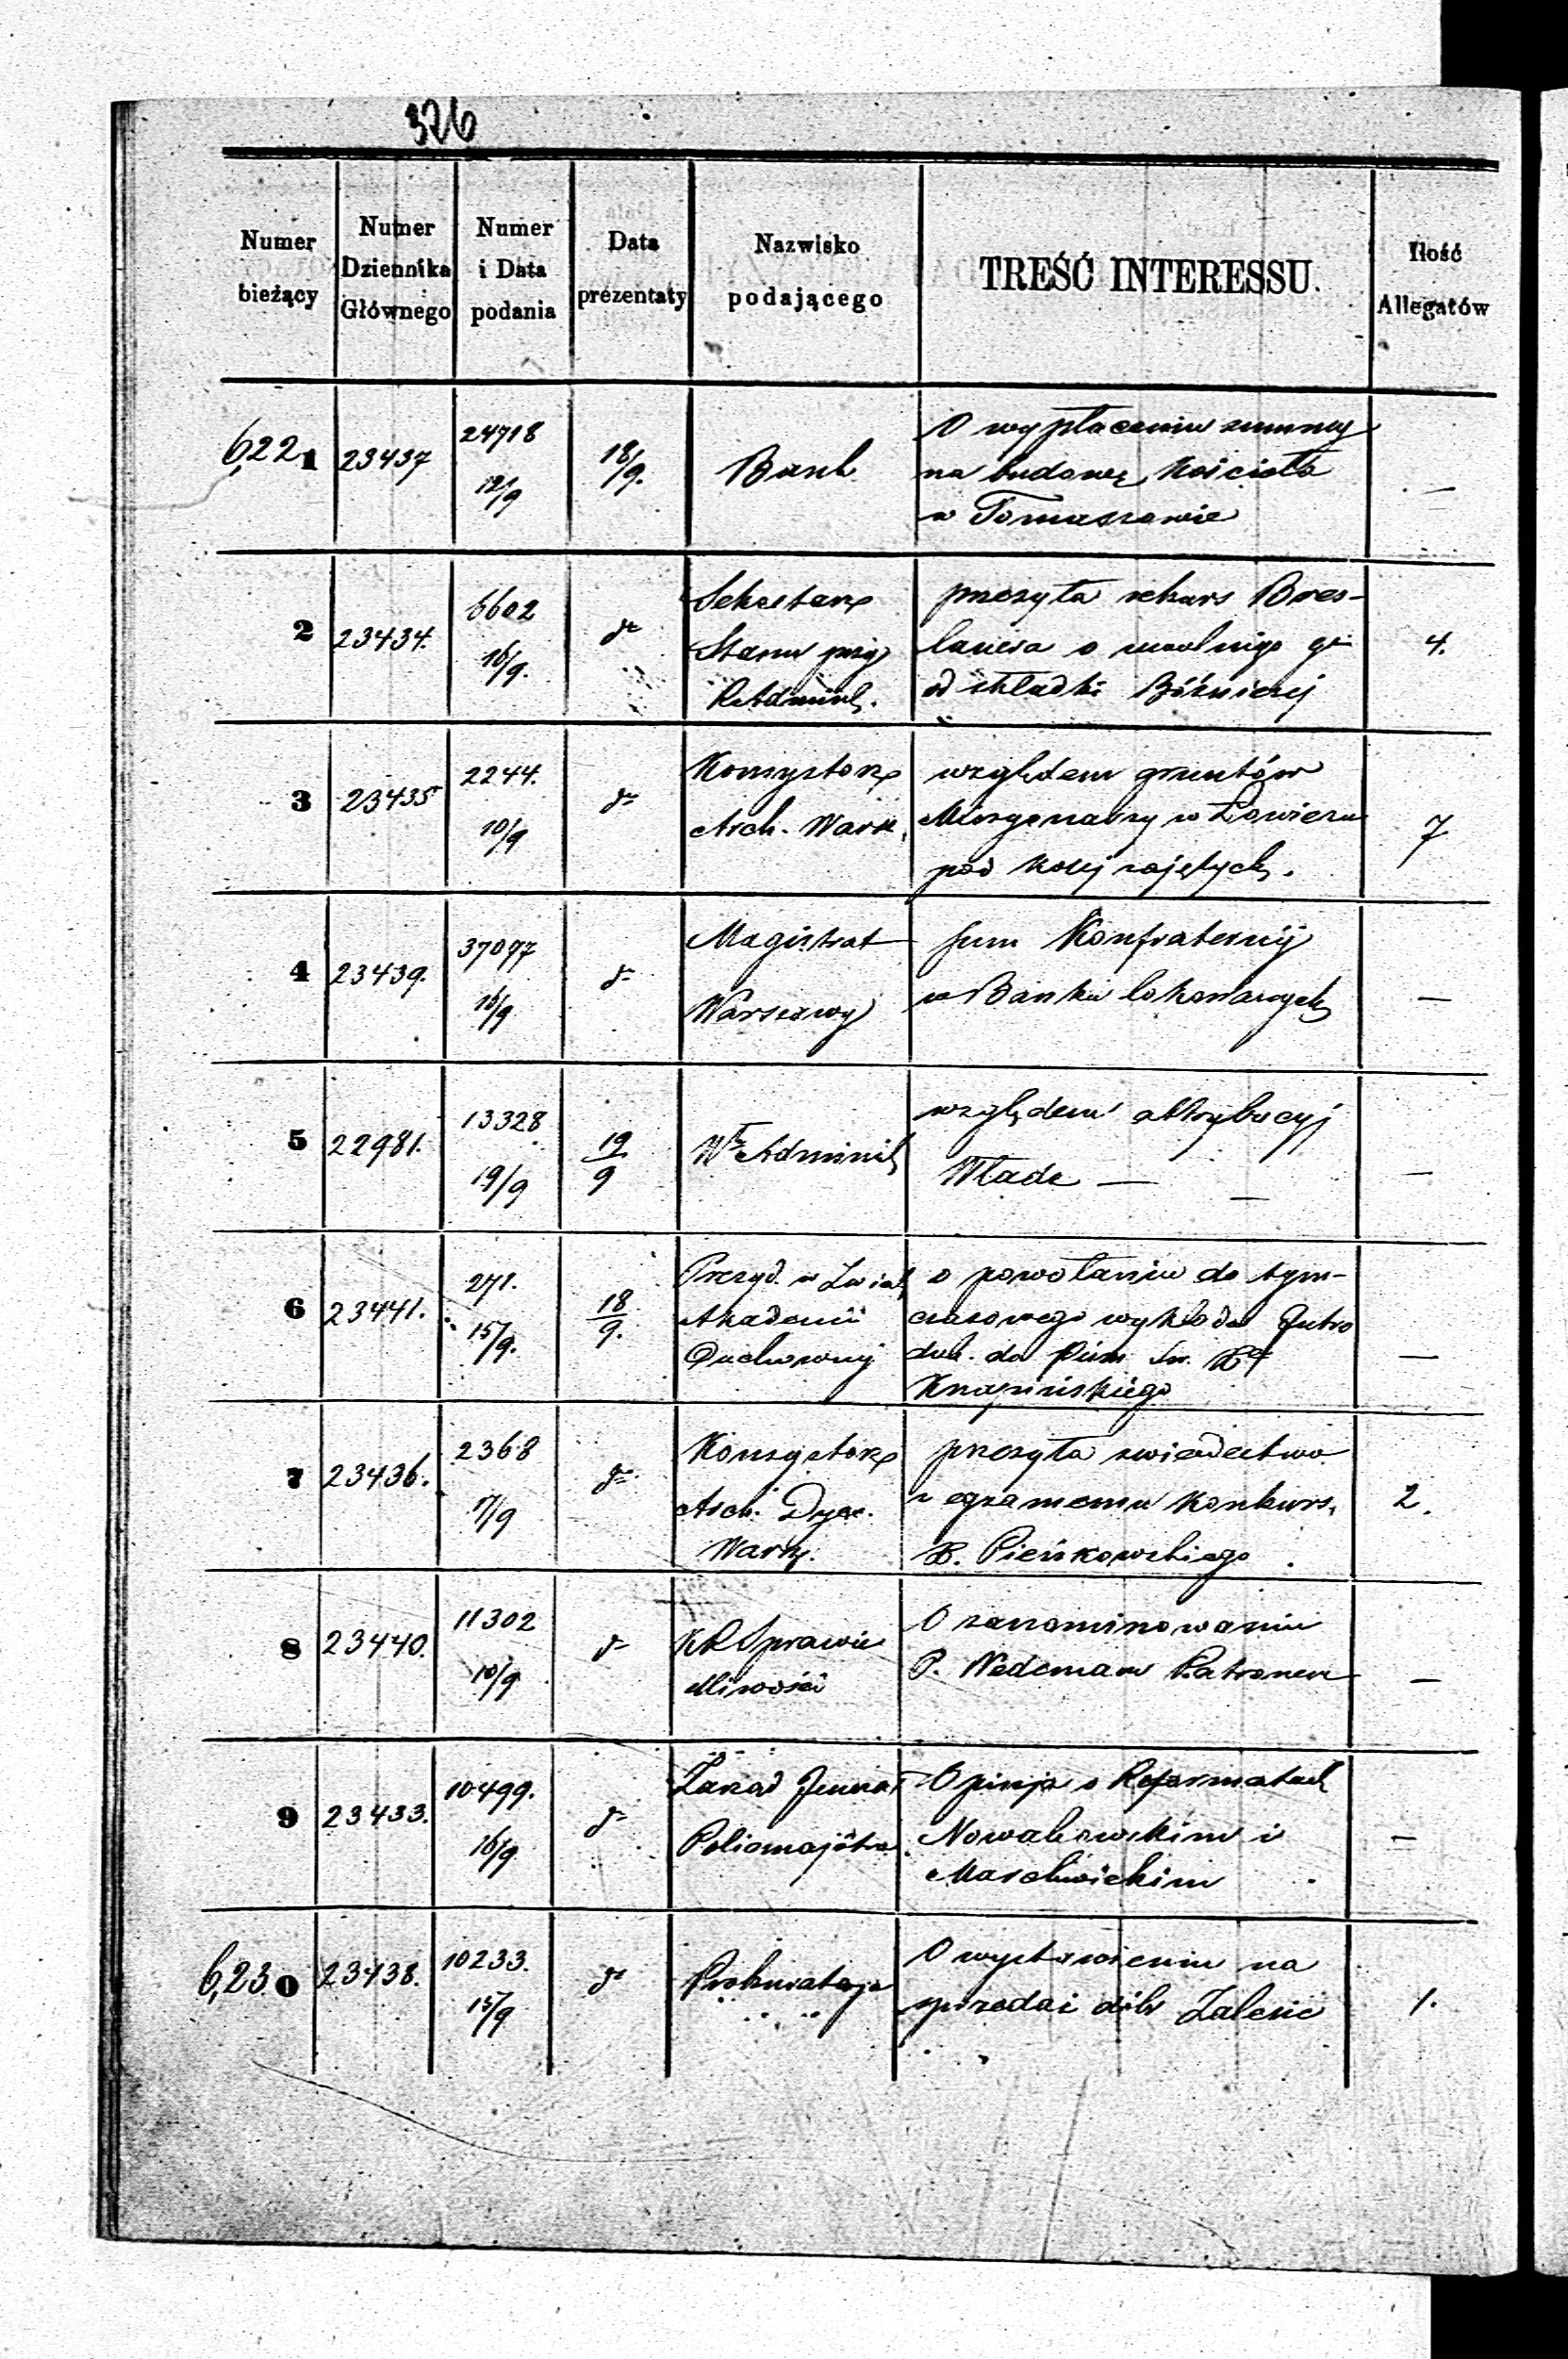 326
Numer bieżący | Numer Dziennika Głównego | Numer i Data podania | Data prezentaty | Nazwisko podającego | TREŚĆ INTERESSU. | Ilość Allegatów
6,221 | 23437 | 24718 12/9 | 18/9. | Bank | O wypłaceniu summy
na budowę Kościoła
w Tomaszowie | —
2 | 23434. | 6602 16/9. | dº | Sekretarz
Stanu przy
RAdminis. | przesyła rekurs Bres-
lauera o uwolnienie go
od składki Bóźniczej | 4.
3 | 23435 | 2244. 10/9 | dº | Konsystorz
Arch. Warsz. | względem gruntów
Missyonarzy w Łowiczu
pod kolej zajętych. | 7
4 | 23439. | 37077 16/9 | dº | Magistrat
Warszawy | sum Konfraternij
w Banku lokowanych | —
5 | 22981. | 13328 19/9 | 19/9 | Wł Adminis | względem attrybucyj
Władz — — | —
6 | 23441. | 271. 15/9. | 18/9. | Prezyd. w Zwiąż
Akademii
Duchownej | o powołaniu do tym-
czasowego wykładu Intro
duk. do Pism Św. X
Knapińskiego | —
7 | 23436. | 2368 17/9 | dº | Konsystorz
Arch. Dyec.
Warsz. | przesyła świadectwo
z egzamenu konkurs.
X. Pieńkowskiego. | 2.
8 | 23440. | 11302 10/9 | dº | KRSprawie
dliwości | O zanominowaniu
P. Wedeman Patronem | —
9 | 23433. | 10499. 16/9 | dº | Zarząd Jenerał
Policmajstra | Opinja o Reformatach
Nowakowskim i
Marchwickim | —
6,230 | 23438. | 10233. 15/9 | dº | Prokuratorja | O wystawieniu na
sprzedaż dóbr Zalesie | 1.